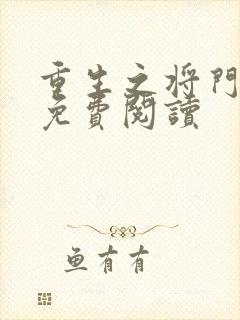 重生之将門
免費閱讀
鱼有有